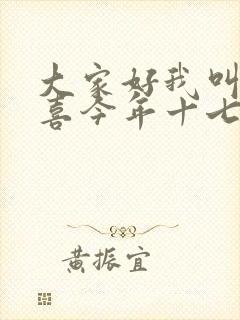 大家好我叫
喜今年十七
黄振宜